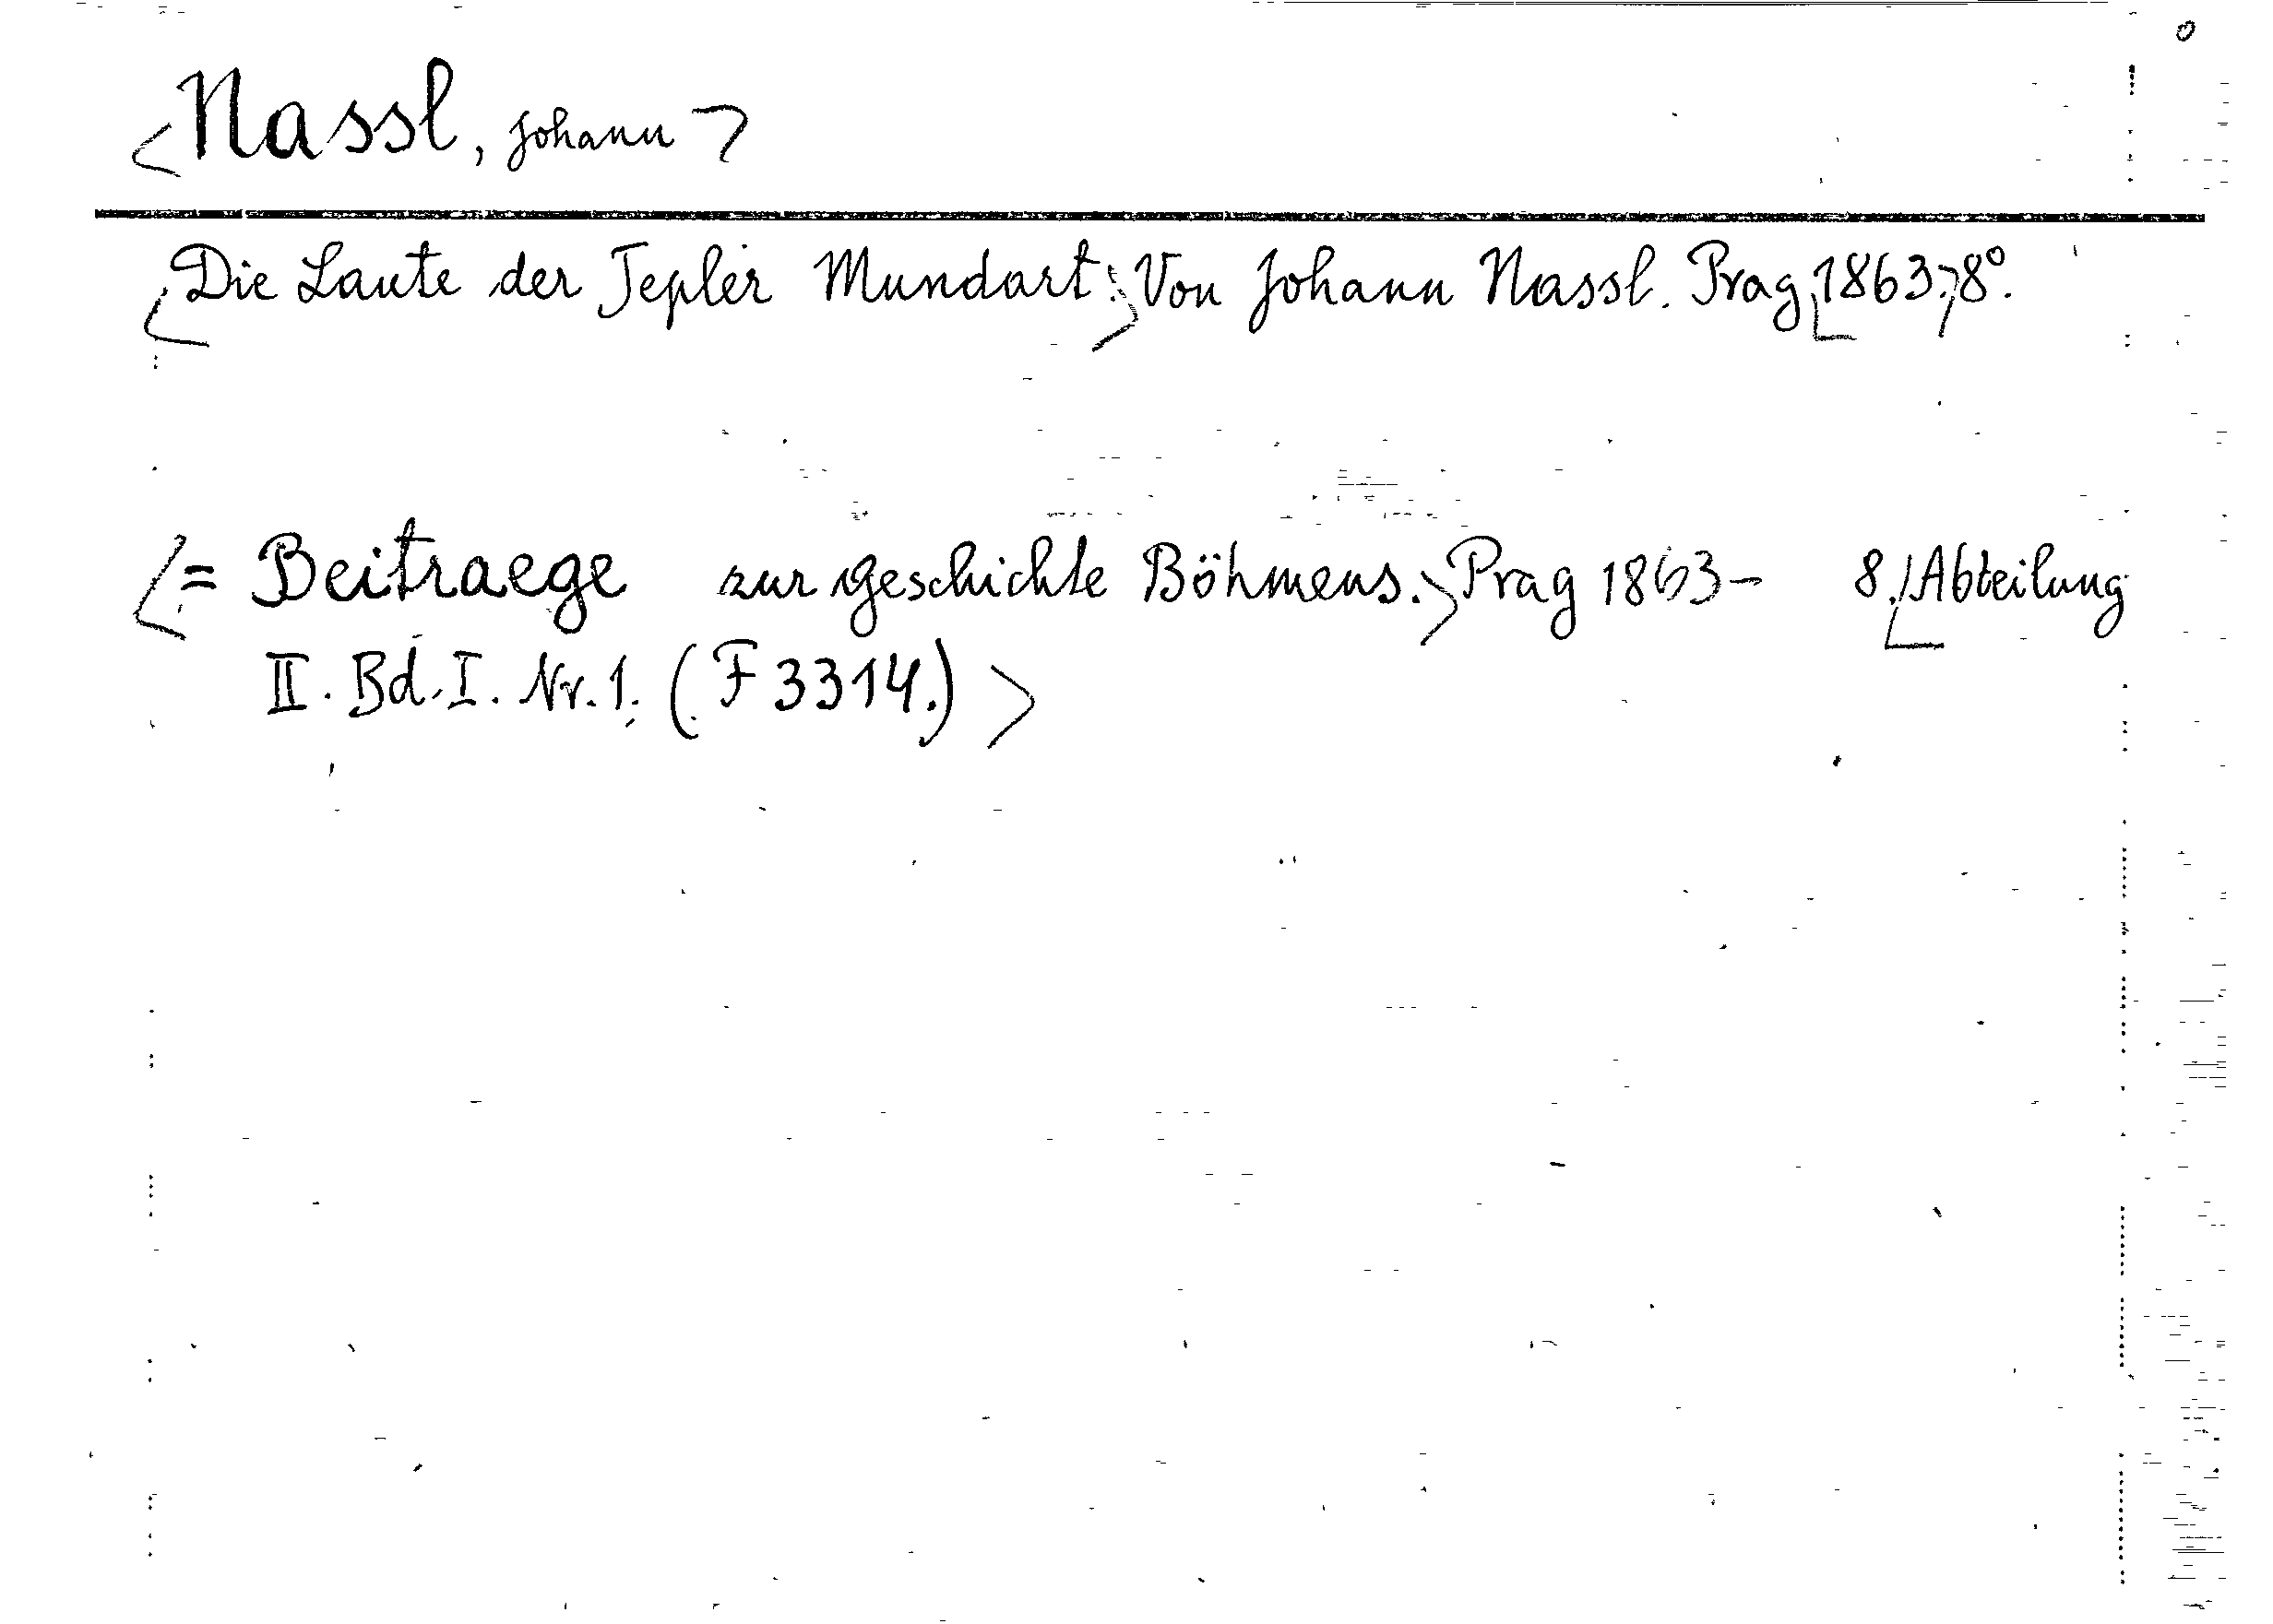 <Nassl, Johann>
<Die Laute der Tepler Mundart:> Von Johann Nassl. Prag <1863.> 8°.
<= Beitraege zur Geschichte Böhmens.> Prag 1863- 8. <Abteilung
II. Bd. I. Nr. 1. (F 3314.)>